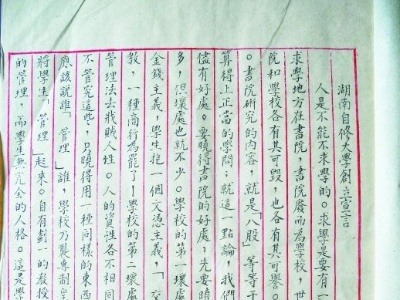 湖南自修大學創立宣言
人是不能不求學的。求學是要有一
求學地方在書院，書院廢而為學校，世
院和學校各有其可毀，也各有其可譽。
。書院研究的內容，就是「八股」等等干
算得上正當的學問；就這一點論，我們
儘有好處。要曉得書院的好處，先要曉
多，但壞處也就不少。學校的第一壞處
金錢主義，學生抱一個文憑主義，「交
教，一種商行為罷了！學校的第二壞處
管理法去戕賊人性。人的資性各不相同
不管究這些，只曉得用一種同樣的東西
應該說誰「管理」誰，學校乃襲專制皇
將學生「管理」起來。自有劃一的教授
的管理，而學生無完全的人格。這是學